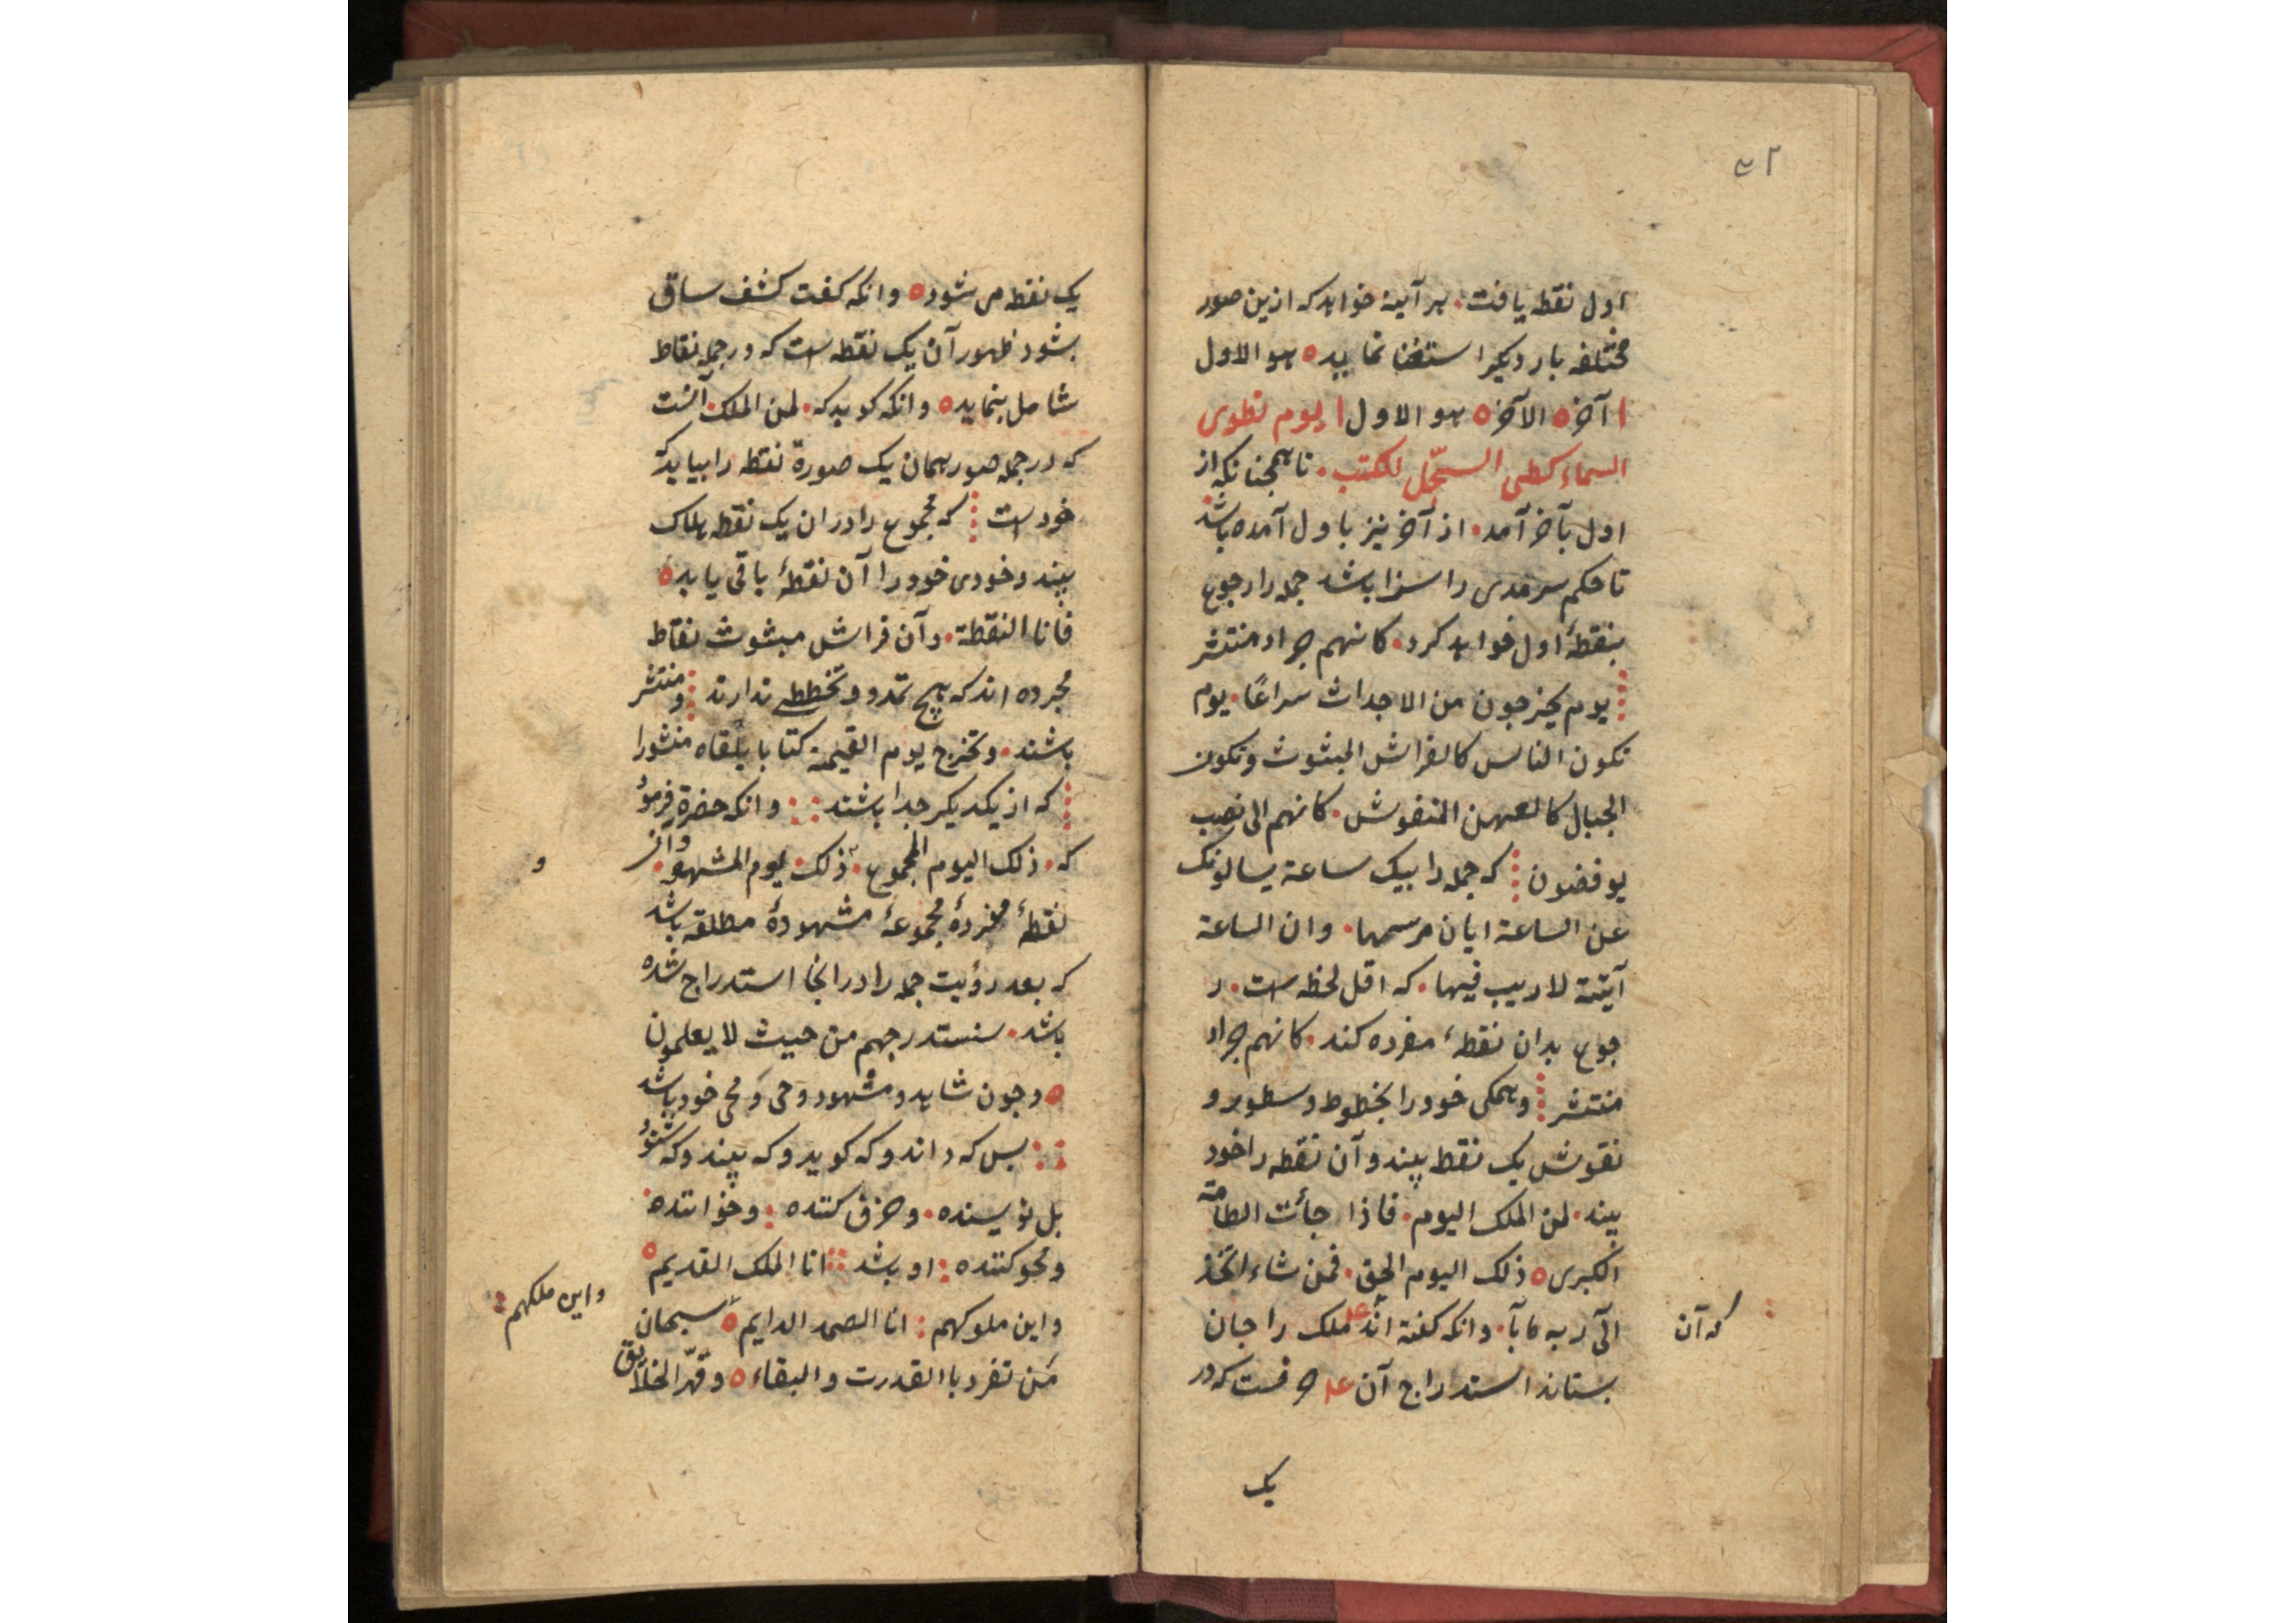 ۴۲
اول نقطه یافت. هر آینه خواهد که ازین صور
مختلفه بار دیکر استغنا نماید ه هو الاول
آخر ه الآخر ه هو الاول یوم نطوی
السماء کطی السجّل للکتب. تا همجنانکه از
اول بآخر آمد. از آخر نیز باول آمده باشد
تا حکم سرمدی را سزا باشد جمله را رجوع
بنقطهٔ اول خواهد کرد. کانهم جراد منتشر
یوم یخرجون من الاجداث سراعًا. یوم
تکون الناس کالفراش المبثوث وتکون
الجبال کالعهن المنفوش. کانهم الی نصب
یوفضون که جمله را بیک ساعة یسالونک
عن الساعة ایان مرسیها. وان الساعة
آتیة لا ریب فیها. که اقل لحظه است. ر
جوع بدان نقطهٔ مفرده کند. کانهم جراد
منتشر وهمکی خود را بخطوط وسطور و
نقوش یک نقطه بیند وآن نقطه را خود
بیند. لمن الملک الیوم. فاذا جأئت الطامة
الکبری ه ذلک الیوم الحق. فمن شاء اتخذ
الی ربه مآبا. وانکه کفته اند ملک را جان
که آن
بستاند استدراج آن حرفست که در
یک
یک نقطه می شود ه وانکه کفت کشف ساق
بشود ظهور آن یک نقطه است که در جمله نقاط
شامل بنماید ه وانکه کوید که. لمن الملک. آنست
که در جمله صور همان یک صورة نقطه را بیابد که
خود است که مجموع را در ان یک نقطه هلاک
بیند وخودی خود را آن نقطهٔ باقی یابد ه
فانا النقطة. وآن فراش مبثوث نقاط
مجرده اند که هیچ تمدد وتخططی ندارند ومنتشر
باشند. وتخرج یوم القیمه. کتابا یلقاه منشورا
که از یکدیکر جدا باشند وانکه حضرة فرمود
که. ذلک الیوم المجموع. ذلک. یوم المشهود. وآنر
و
نقطهٔ مفردهٔ مجموعهٔ مشهودهٔ مطلقه باشد
که بعد رؤیت جمله را در انجا استدراج شده
باشد. سنستدرجهم من حیث لا یعلمون
ه وجون شاهد ومشهود وحی ومحی خود باشد
بس که داند وکه کوید وکه بیند وکه شنود
بل نویسنده. وحرف کننده وخواننده
ومحو کننده او باشد انا الملک القدیم ه
واین ملکهم
واین ملوکهم انا الصمد الدایم ه سبحان
من تفرد با القدرت والبقاء ه وقهّر الخلایق